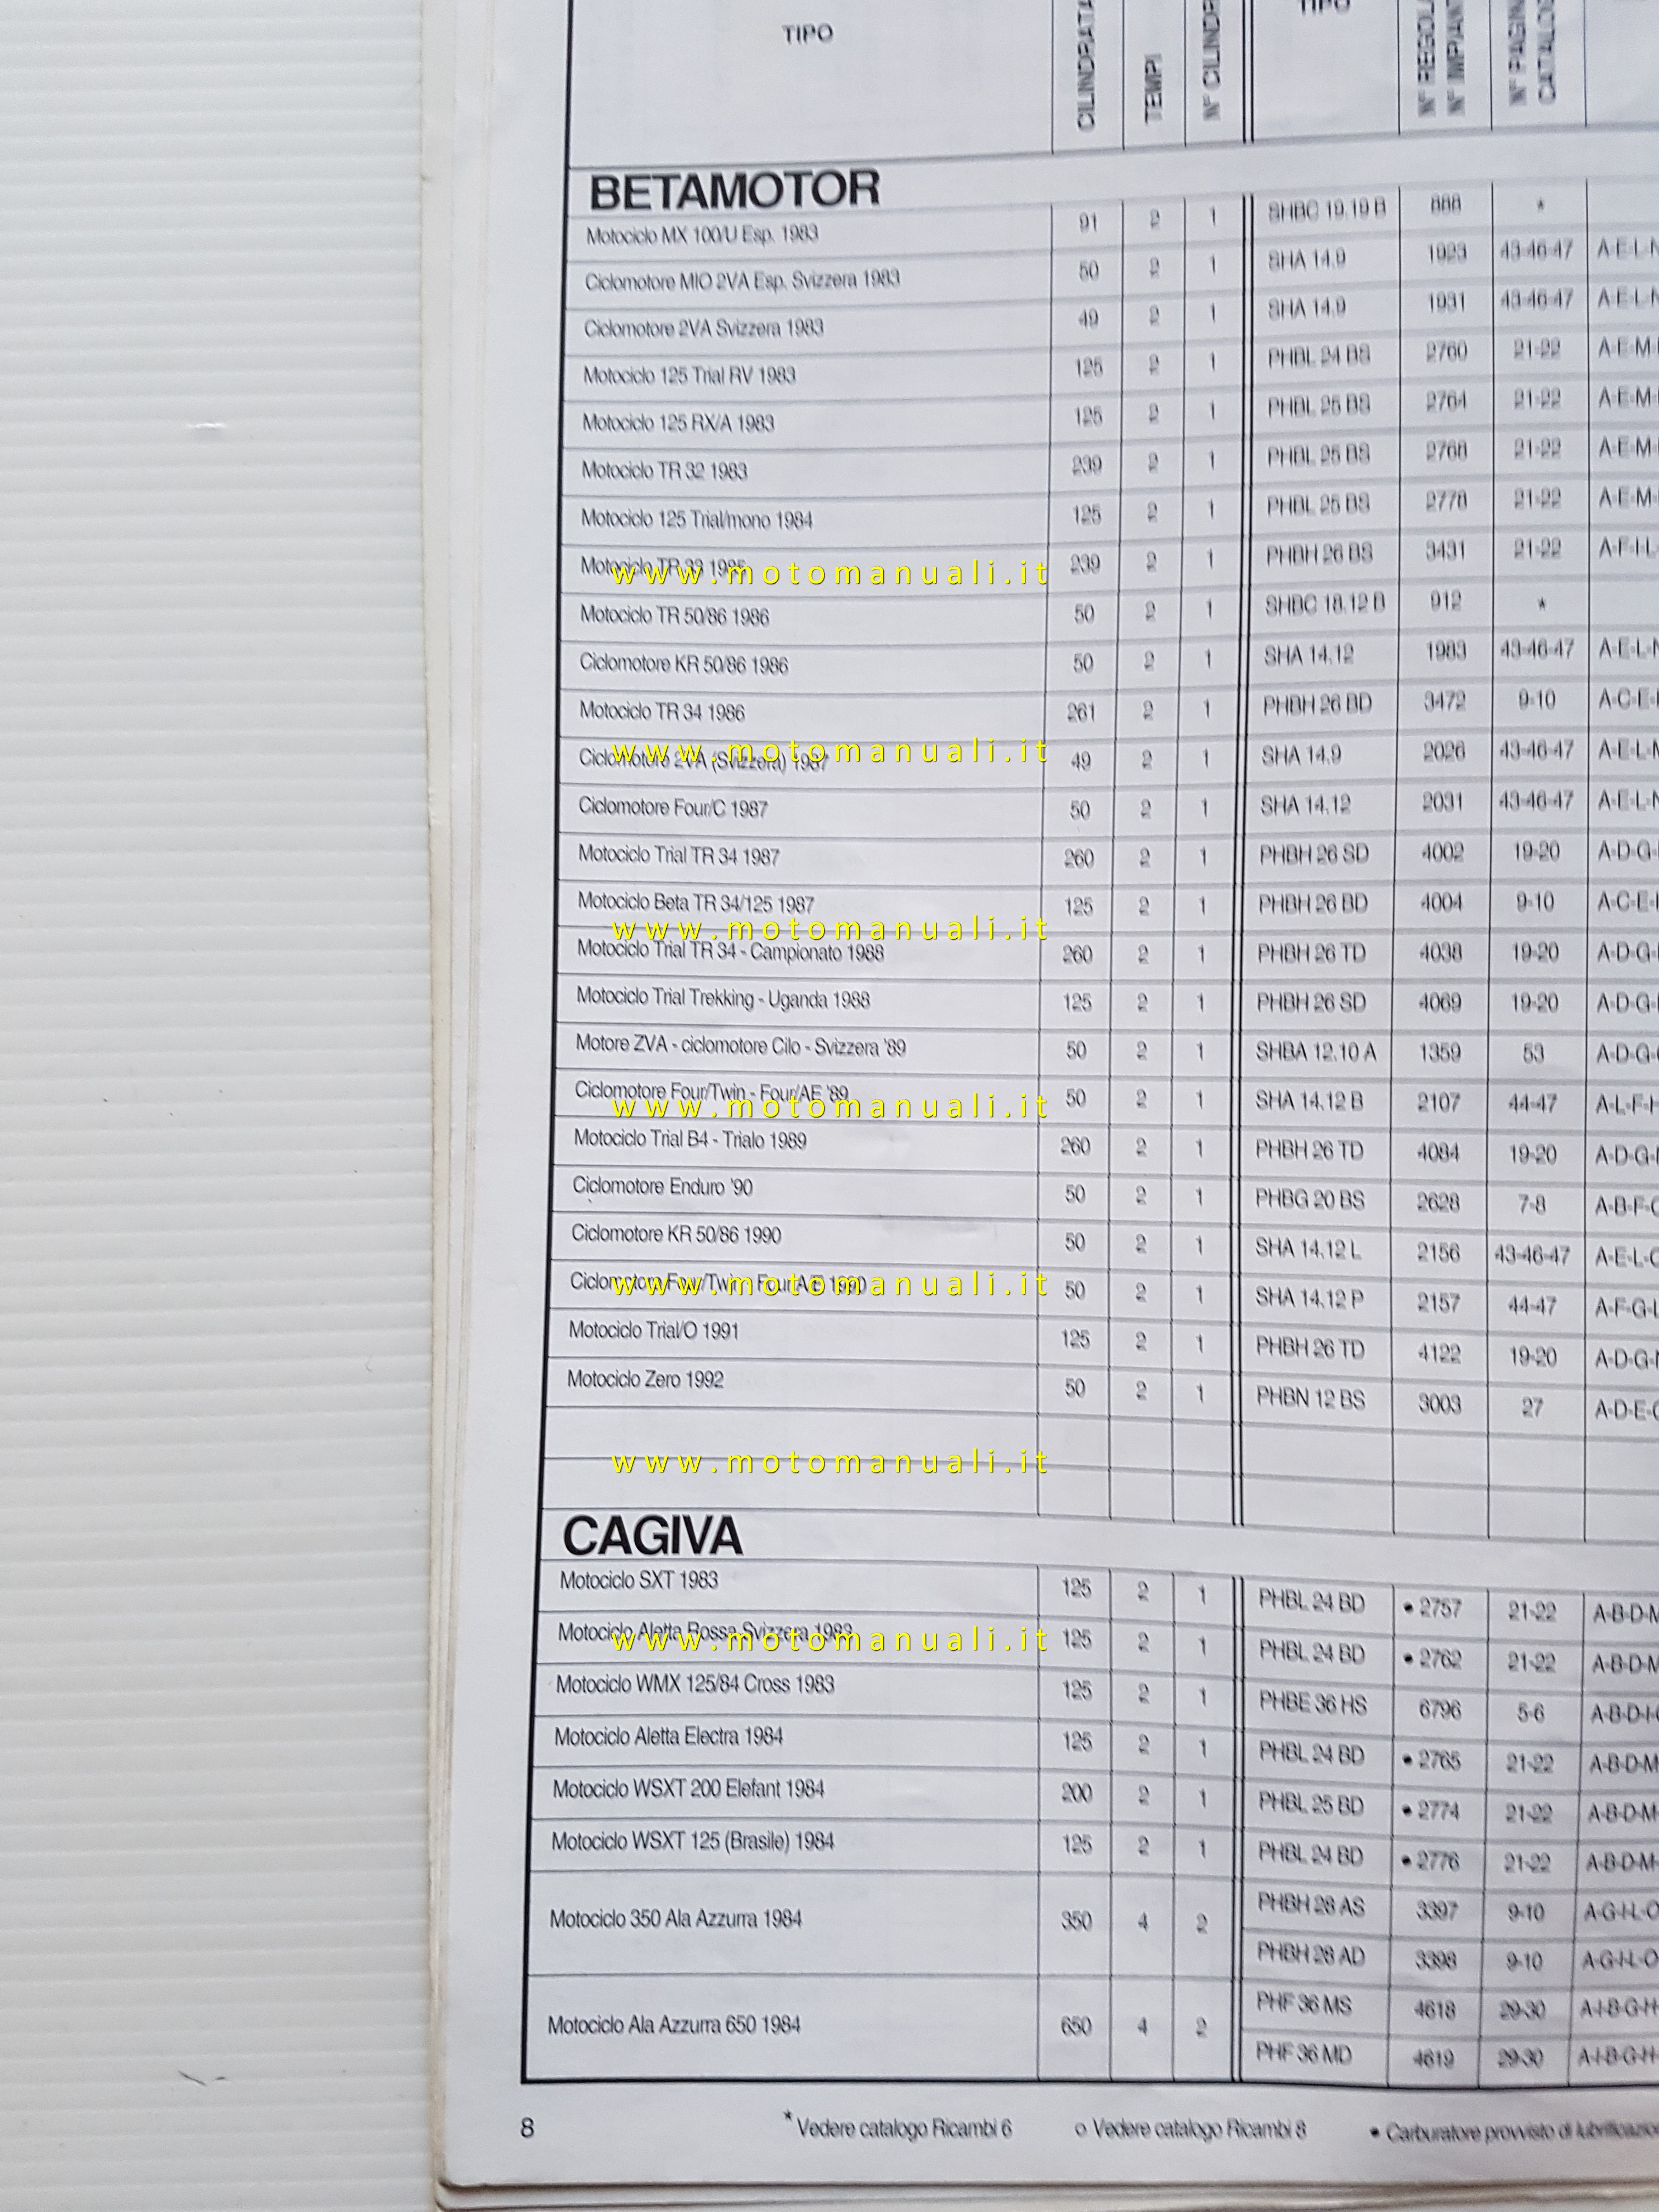 TIPO CILINDRATA TEMPI N° CILINDRI TIPO N° REGOLA N° IMPIANT N° PAGIN CATALOG
BETAMOTOR
Motociclo MX 100/U Esp. 1983 91 2 1 SHBC 19.19 B 888 *
Ciclomotore MIO 2VA Esp. Svizzera 1983 50 2 1 SHA 14.9 1923 43-46-47 A-E-L-N
Ciclomotore 2VA Svizzera 1983 49 2 1 SHA 14.9 1931 43-46-47 A-E-L-N
Motociclo 125 Trial RV 1983 125 2 1 PHBL 24 BS 2760 21-22 A-E-M-
Motociclo 125 RX/A 1983 125 2 1 PHBL 25 BS 2764 21-22 A-E-M-
Motociclo TR 32 1983 239 2 1 PHBL 25 BS 2768 21-22 A-E-M-
Motociclo 125 Trial/mono 1984 125 2 1 PHBL 25 BS 2778 21-22 A-E-M-
Motociclo TR 33 1985 239 2 1 PHBH 26 BS 3431 21-22 A-F-I-L-
www.motomanuali.it
Motociclo TR 50/86 1986 50 2 1 SHBC 18.12 B 912 *
Ciclomotore KR 50/86 1986 50 2 1 SHA 14.12 1983 43-46-47 A-E-L-N
Motociclo TR 34 1986 261 2 1 PHBH 26 BD 3472 9-10 A-C-E-
Ciclomotore 2VA (Svizzera) 1987 49 2 1 SHA 14.9 2026 43-46-47 A-E-L-M
www.motomanuali.it
Ciclomotore Four/C 1987 50 2 1 SHA 14.12 2031 43-46-47 A-E-L-N
Motociclo Trial TR 34 1987 260 2 1 PHBH 26 SD 4002 19-20 A-D-G-
Motociclo Beta TR 34/125 1987 125 2 1 PHBH 26 BD 4004 9-10 A-C-E-
www.motomanuali.it
Motociclo Trial TR 34 - Campionato 1988 260 2 1 PHBH 26 TD 4038 19-20 A-D-G-
Motociclo Trial Trekking - Uganda 1988 125 2 1 PHBH 26 SD 4069 19-20 A-D-G-
Motore ZVA - ciclomotore Cilo - Svizzera '89 50 2 1 SHBA 12.10 A 1359 53 A-D-G-
Ciclomotore Four/Twin - Four/AE '89 50 2 1 SHA 14.12 B 2107 44-47 A-L-F-H
www.motomanuali.it
Motociclo Trial B4 - Trialo 1989 260 2 1 PHBH 26 TD 4084 19-20 A-D-G-
Ciclomotore Enduro '90 50 2 1 PHBG 20 BS 2628 7-8 A-B-F-
Ciclomotore KR 50/86 1990 50 2 1 SHA 14.12 L 2156 43-46-47 A-E-L-
Ciclomotore Four/Twin - Four A/E 1990 50 2 1 SHA 14.12 P 2157 44-47 A-F-G-L
www.motomanuali.it
Motociclo Trial/O 1991 125 2 1 PHBH 26 TD 4122 19-20 A-D-G-
Motociclo Zero 1992 50 2 1 PHBN 12 BS 3003 27 A-D-E-
www.motomanuali.it
CAGIVA
Motociclo SXT 1983 125 2 1 PHBL 24 BD • 2757 21-22 A-B-D-M
Motociclo Aletta Rossa Svizzera 1983 125 2 1 PHBL 24 BD • 2762 21-22 A-B-D-M
www.motomanuali.it
Motociclo WMX 125/84 Cross 1983 125 2 1 PHBE 36 HS 6796 5-6 A-B-D-I-
Motociclo Aletta Electra 1984 125 2 1 PHBL 24 BD • 2765 21-22 A-B-D-M
Motociclo WSXT 200 Elefant 1984 200 2 1 PHBL 25 BD • 2774 21-22 A-B-D-M-
Motociclo WSXT 125 (Brasile) 1984 125 2 1 PHBL 24 BD • 2776 21-22 A-B-D-M-
Motociclo 350 Ala Azzurra 1984 350 4 2 PHBH 28 AS 3397 9-10 A-G-I-L-O
PHBH 28 AD 3398 9-10 A-G-I-L-O
Motociclo Ala Azzurra 650 1984 650 4 2 PHF 36 MS 4618 29-30 A-I-B-G-H-
PHF 36 MD 4619 29-30 A-I-B-G-H-
8 * Vedere catalogo Ricambi 6 o Vedere catalogo Ricambi 8 • Carburatore provvisto di lubrificazio